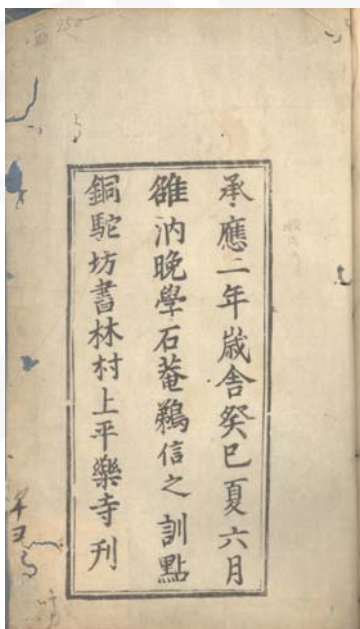 承應二年歲舍癸巳夏六月
雒汭晚學石菴鵜信之訓點
銅駝坊書林村上平樂寺刊
250